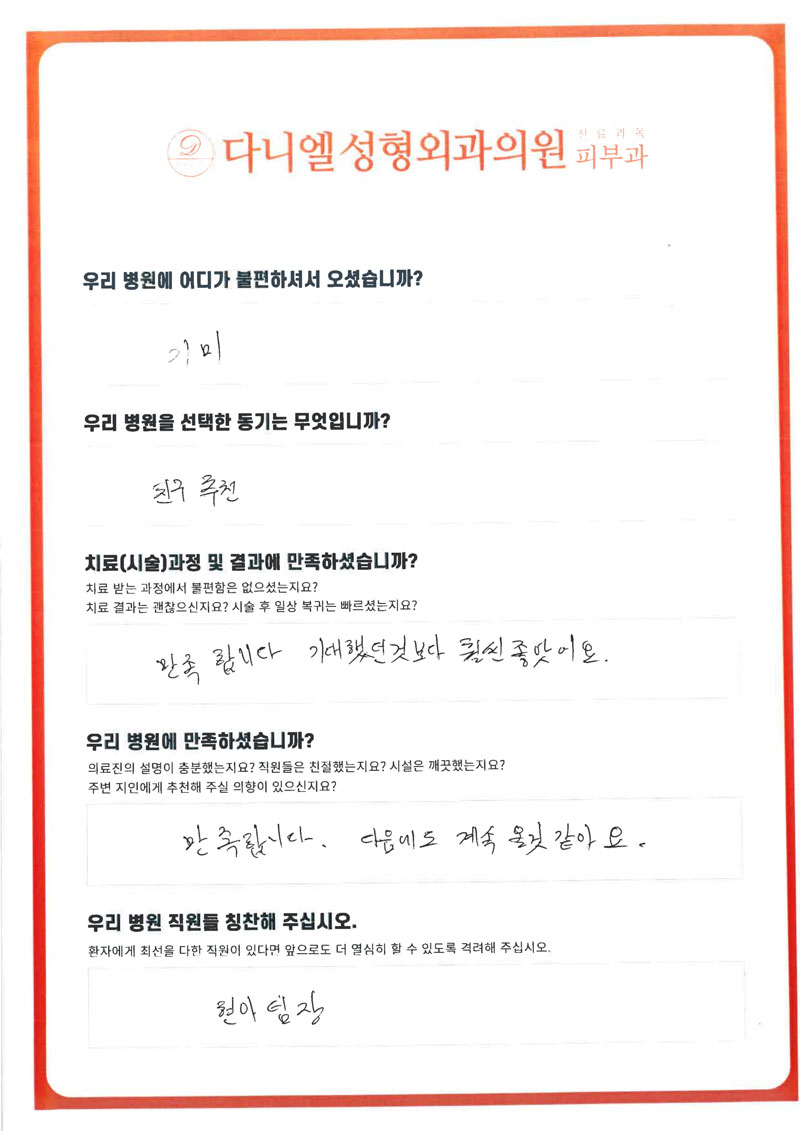 다니엘성형외과의원 진료과목 피부과
우리 병원에 어디가 불편하셔서 오셨습니까?
기미
우리 병원을 선택한 동기는 무엇입니까?
친구 추천
치료(시술)과정 및 결과에 만족하셨습니까?
치료 받는 과정에서 불편함은 없으셨는지요?
치료 결과는 괜찮으신지요? 시술 후 일상 복귀는 빠르셨는지요?
만족 합니다 기대했던것보다 훨씬좋았어요.
우리 병원에 만족하셨습니까?
의료진의 설명이 충분했는지요? 직원들은 친절했는지요? 시설은 깨끗했는지요?
주변 지인에게 추천해 주실 의향이 있으신지요?
만족합니다. 다음에도 계속 올것같아요.
우리 병원 직원들 칭찬해 주십시오.
환자에게 최선을 다한 직원이 있다면 앞으로도 더 열심히 할 수 있도록 격려해 주십시오.
현아 팀장